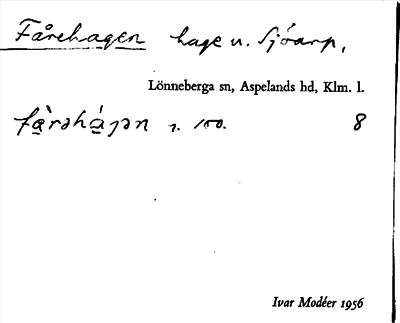 Fårehagen hage u. Sjöarp,
Lönneberga sn, Aspelands hd, Klm. l.
8
Ivar Modéer 1956